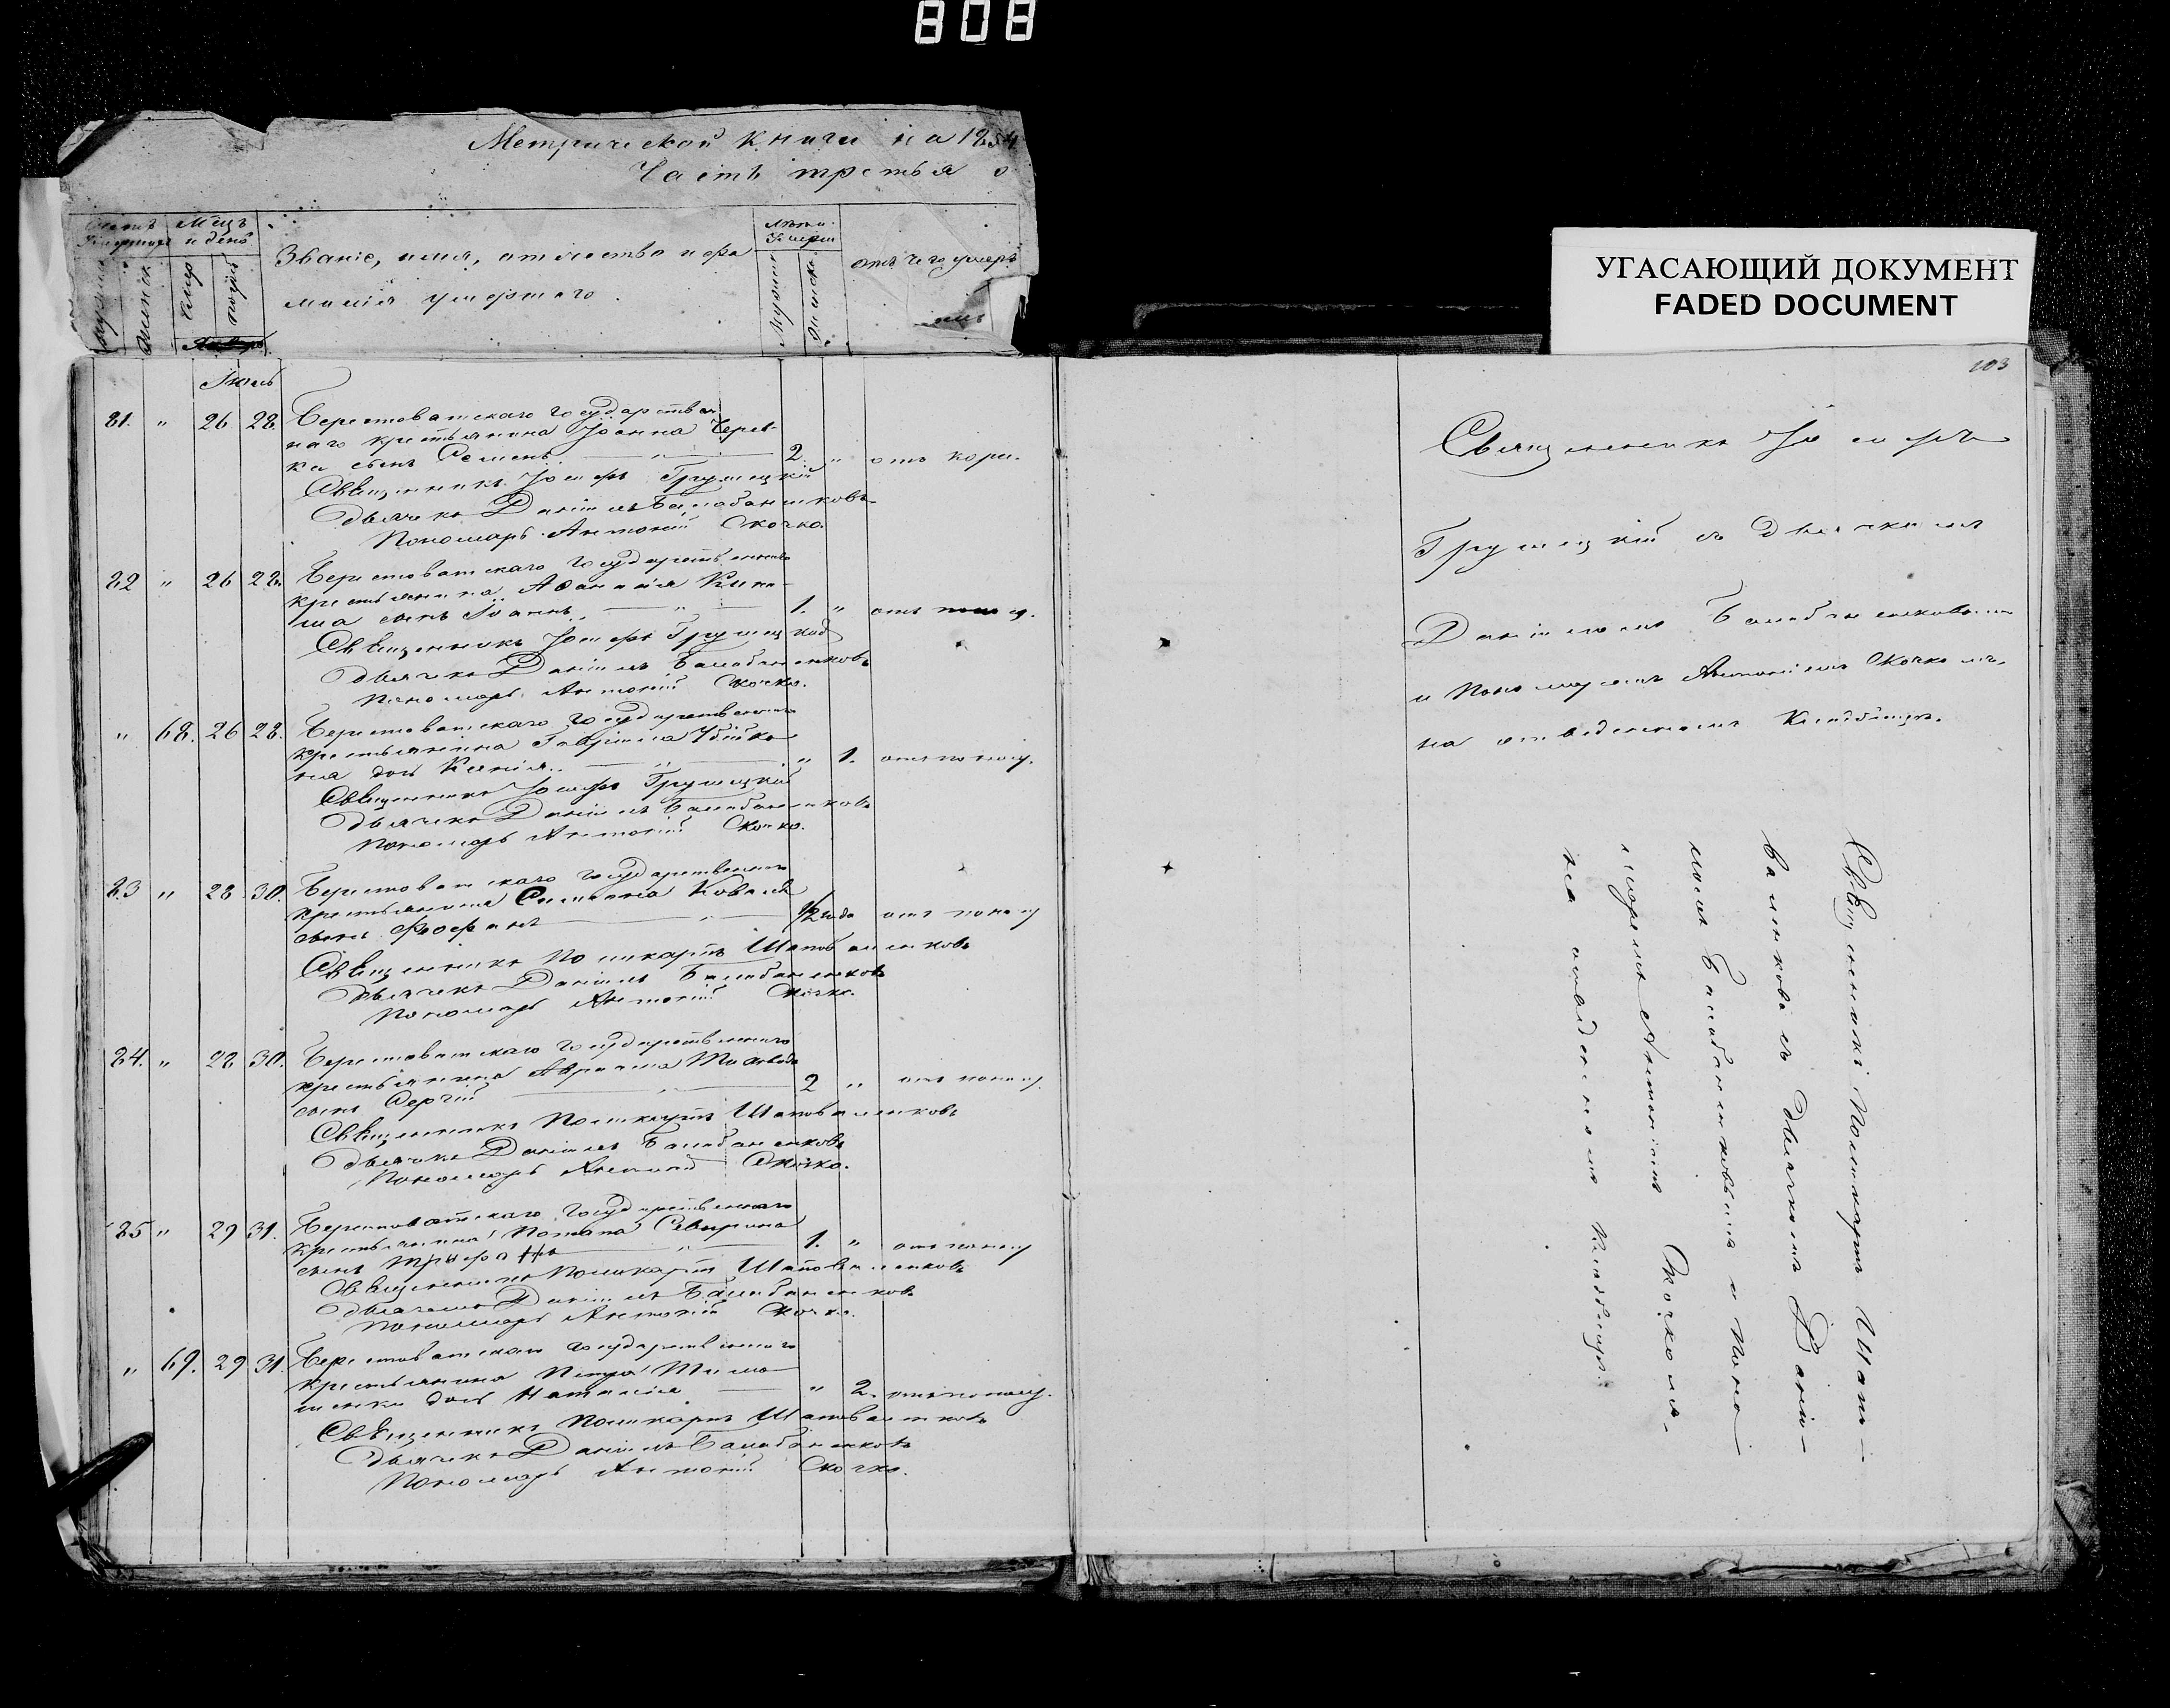 808
Метрической книги на 1854
Часть третья о
УГАСАЮЩИЙ ДОКУМЕНТ
FADED DOCUMENT
Мѣцъ и день
Званіе, имя, отчество и фа
милія умершаго.
Лѣта Умерш
отъ чего умеръ
Іюль
81. " 26 28. Берестоватскаго государствен
наго крестьянина Іоанна Черев-
ка сынъ Семенъ. — " — 2. " отъ кори.
Священникъ Іосифъ Грушецкій
Дьячекъ Даніилъ Балабаненковъ
Пономарь Антоній Скочко.
82 " 26 28. Берестоватскаго государственнаго
крестьянина Аѳанасія Кли
ма сынъ Іоаннъ. — " — 1. " отъ
Священникъ Іосифъ Грушецкій
Дьячекъ Даніилъ Балабаненковъ
Пономарь Антоній Скочко.
" 68. 26 28. Берестоватскаго государственнаго
крестьянина Гавріила Убійко
дочь Ксенія. — " — " 1. отъ поносу.
Священникъ Іосифъ Грушецкій
Дьячекъ Даніилъ Балабаненковъ
Пономарь Антоній Скочко.
83 " 28 30. Берестоватскаго государственнаго
крестьянина Симеона Коваля
сынъ Феофанъ — " — 1/2 года отъ поносу
Священникъ Поликарпъ Шаповаленковъ
Дьячекъ Даніилъ Балабаненковъ
Пономарь Антоній Скочко.
84. " 28 30. Берестоватскаго государственнаго
крестьянина Авраама
сынъ Сергій — " — 2 " отъ поносу.
Священникъ Поликарпъ Шаповаленковъ
Дьячекъ Даніилъ Балабаненковъ
Пономарь Антоній Скочко.
85 " 29 31. Берестоватскаго государственнаго
крестьянина Потапа Северина
сынъ Трифанъ — " — 1. " отъ поносу
Священникъ Поликарпъ Шаповаленковъ
Дьячекъ Даніилъ Балабаненковъ
Пономарь Антоній Скочко.
" 69. 29 31. Берестоватскаго государственнаго
крестьянина Петра Тимо
шенки дочь Наталія — " 2. отъ поносу.
Священникъ Поликарпъ Шаповаленковъ
Дьячекъ Даніилъ Балабаненковъ
Пономарь Антоній Скочко.
103
Священникъ Іосифъ
Грушецкій съ Дьячкомъ
Даніиломъ Балабаненковымъ
и Пономаремъ Антоніемъ Скочкомъ.
на отведенномъ Кладбищѣ.
Священникъ Поликарпъ Шапо-
валенковъ съ Дьячкомъ Даніи-
ломъ Балабаненковымъ и Поно-
маремъ Антоніемъ Скочкомъ.
на отведенномъ Кладбищѣ.